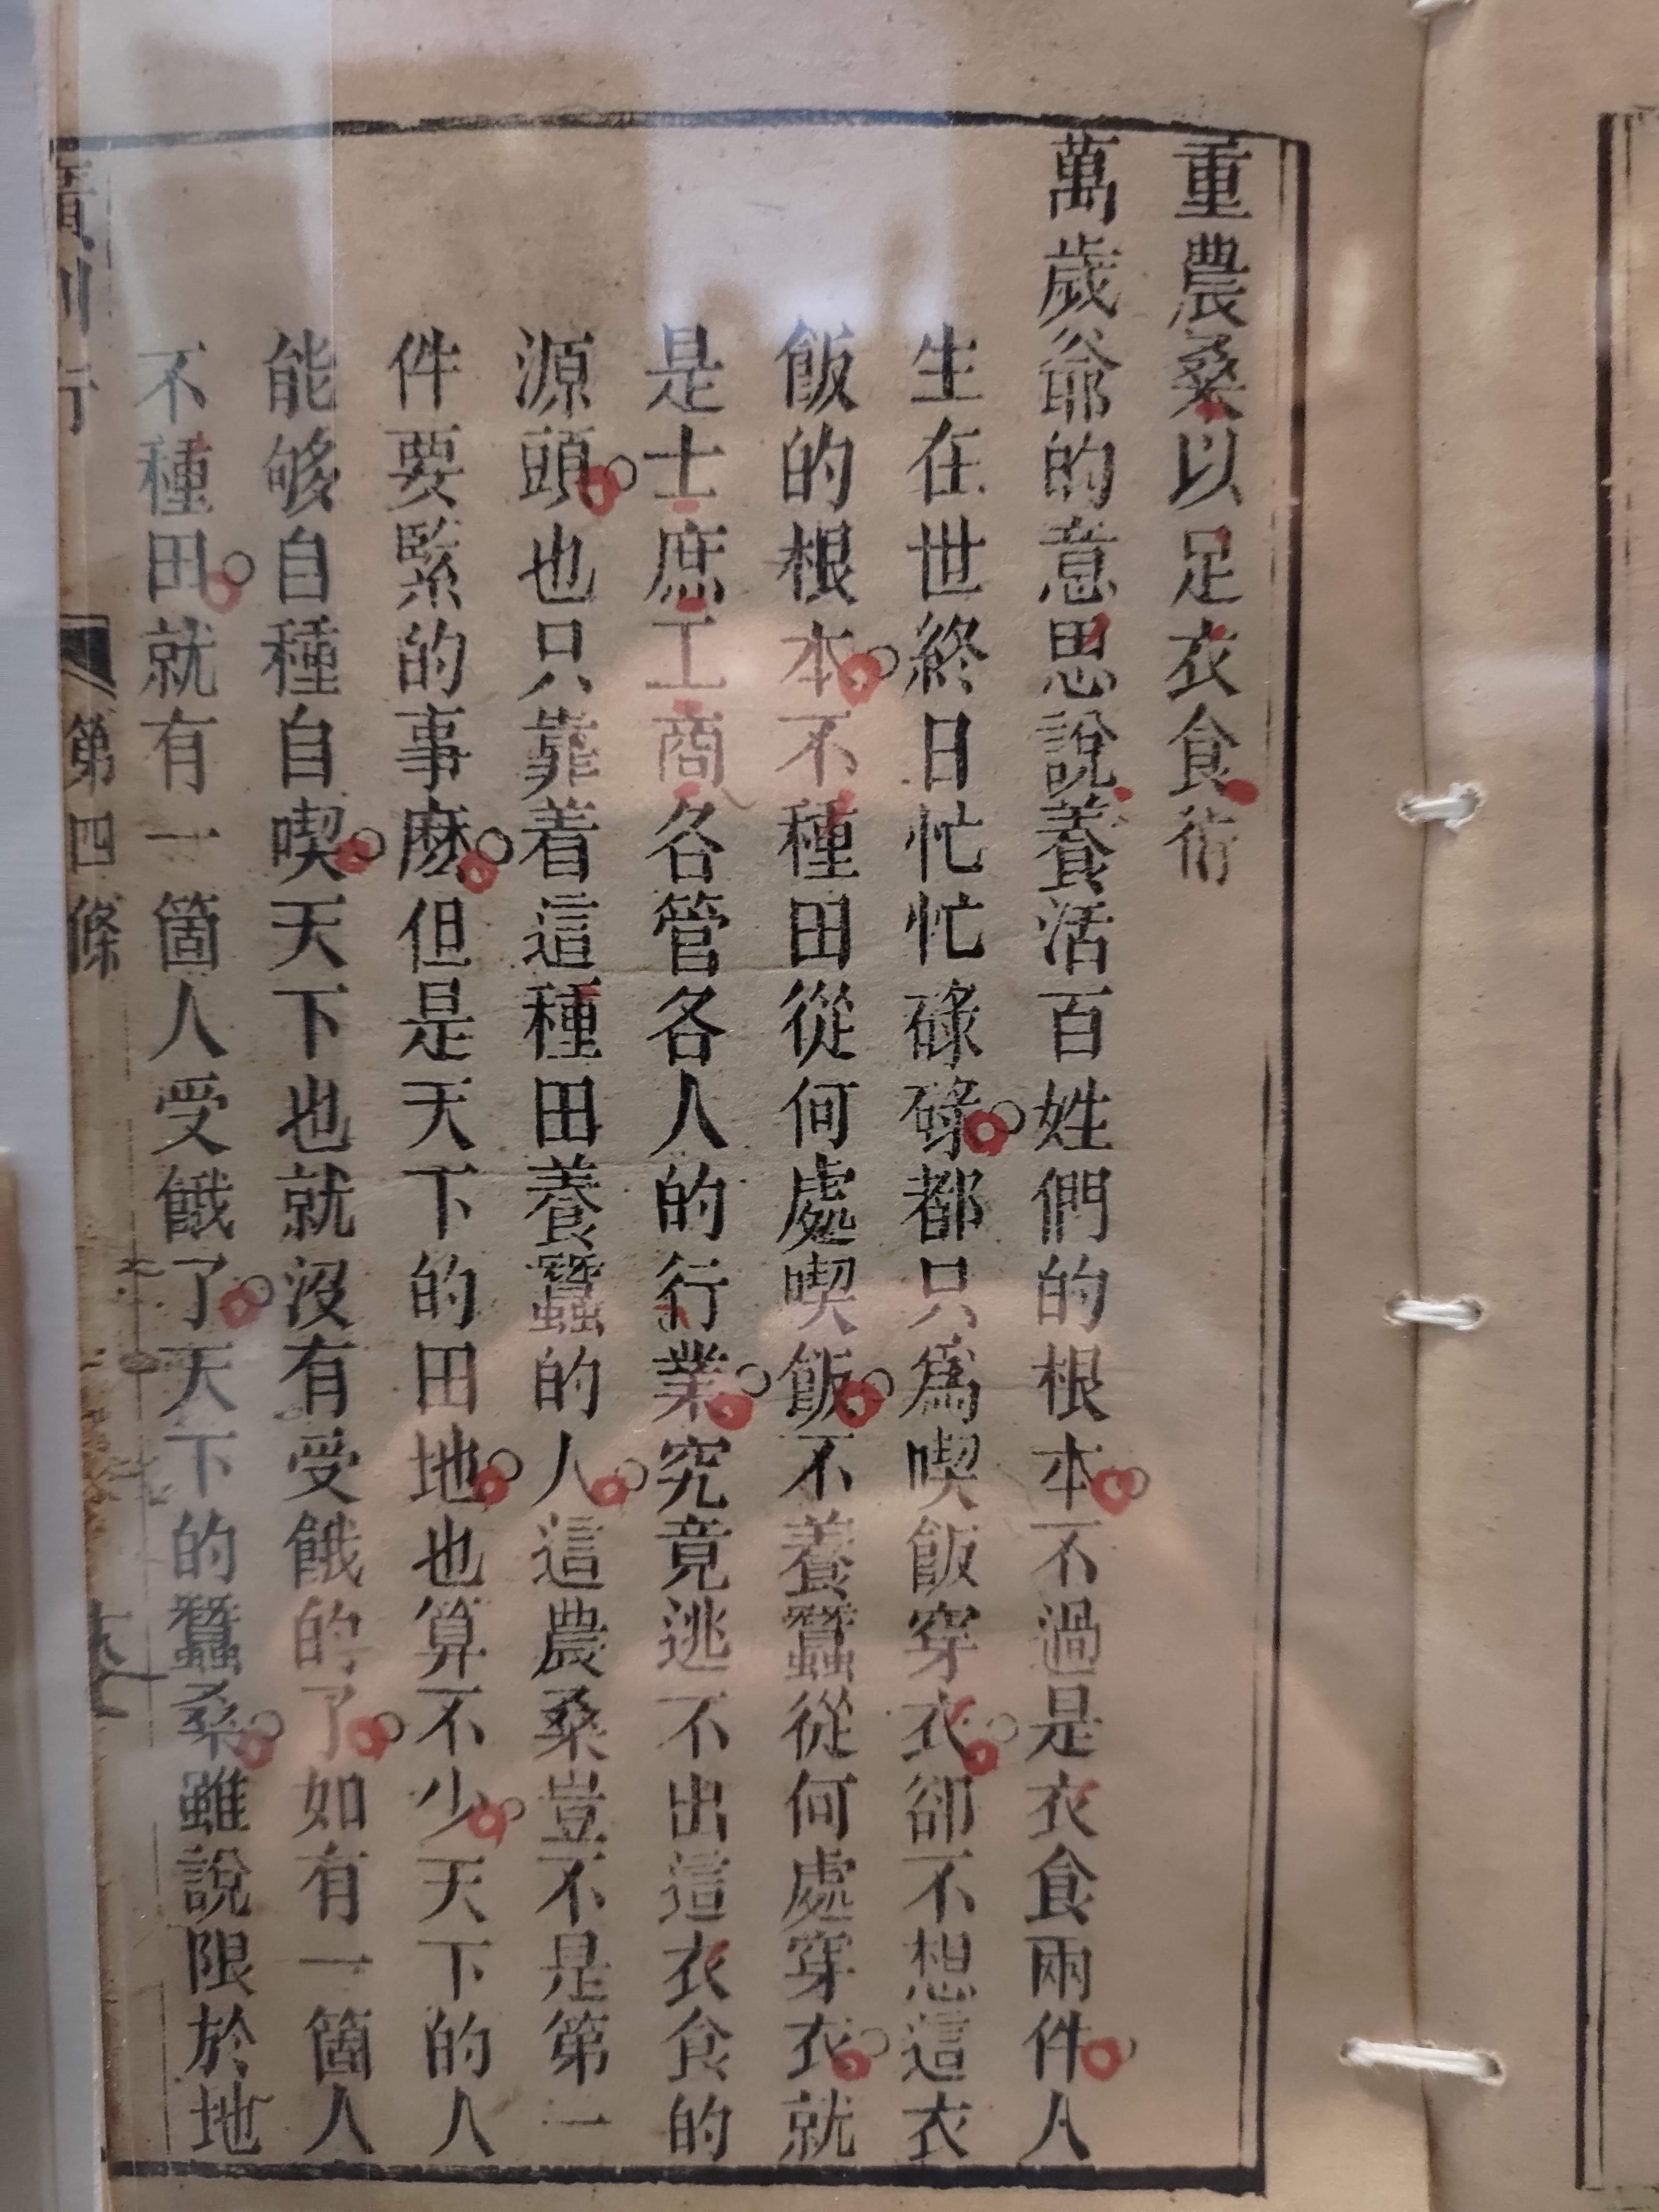 重農桑以足衣食術
萬歲爺的意思說養活百姓們的根本不過是衣食兩件人
生在世終日忙忙碌碌都只爲喫飯穿衣卻不想這衣
飯的根本不種田從何處喫飯不養蠶從何處穿衣就
是士庶工商各管各人的行業究竟逃不出這衣食的
源頭也只靠着這種田養蠶的人這農桑豈不是第一
件要緊的事麽但是天下的田地也算不少天下的人
能够自種自喫天下也就沒有受餓的了如有一箇人
不種田就有一箇人受餓了天下的蠶桑雖說限於地
第四條